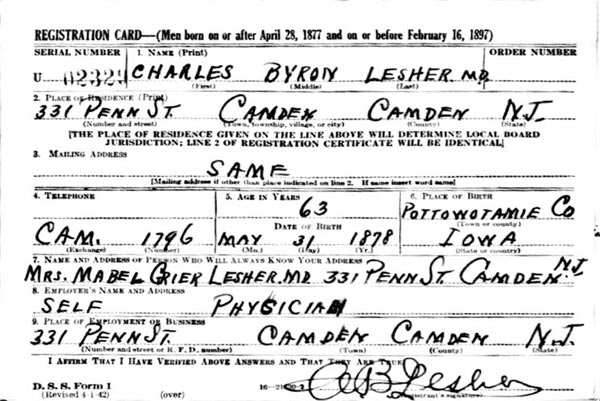 REGISTRATION CARD—(Men born on or after April 28, 1877 and on or before February 16, 1897)
SERIAL NUMBER 1. NAME (Print) ORDER NUMBER
U 02329 CHARLES BYRON LESHER MD.
(First) (Middle) (Last)
2. PLACE OF RESIDENCE (Print)
331 PENN ST. CAMDEN CAMDEN N.J.
(Number and street) (Town, township, village, or city) (County) (State)
[THE PLACE OF RESIDENCE GIVEN ON THE LINE ABOVE WILL DETERMINE LOCAL BOARD
JURISDICTION; LINE 2 OF REGISTRATION CERTIFICATE WILL BE IDENTICAL]
3. MAILING ADDRESS
SAME
[Mailing address if other than place indicated on line 2. If same insert word same]
4. TELEPHONE 5. AGE IN YEARS 6. PLACE OF BIRTH
63 POTTOWOTAMIE CO
DATE OF BIRTH (Town or county)
CAM. 1796 MAY 31 1878 IOWA
(Exchange) (Number) (Mo.) (Day) (Yr.) (State or country)
7. NAME AND ADDRESS OF PERSON WHO WILL ALWAYS KNOW YOUR ADDRESS
MRS. MABEL GRIER LESHER. MD. 331 PENN ST. CAMDEN. N.J.
8. EMPLOYER'S NAME AND ADDRESS
SELF PHYSICIAN
9. PLACE OF EMPLOYMENT OR BUSINESS
331 PENN ST. CAMDEN CAMDEN N.J.
(Number and street or R. F. D. number) (Town) (County) (State)
I AFFIRM THAT I HAVE VERIFIED ABOVE ANSWERS AND THAT THEY ARE TRUE.
D. S. S. Form 1
(Revised 4-1-42) (over) CB Lesher
(Registrant's signature)